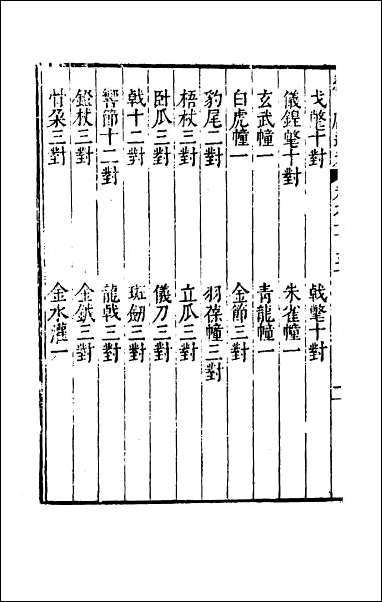 戈氅十對　戟氅十對
儀鍠氅十對　朱雀幢一
玄武幢一　青龍幢一
白虎幢一　金節三對
豹尾二對　羽葆幢三對
梧杖三對　立瓜三對
卧瓜三對　儀刀三對
戟十二對　班劒三對
響節十二對　龍戟三對
鐙杖三對　金鉞三對
竹朵三對　金水灌一